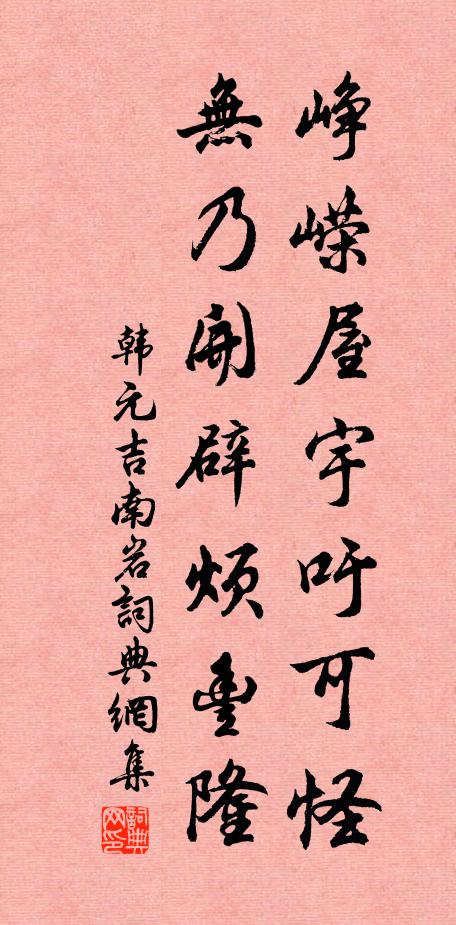 峥嵘屋宇吁可怪
無乃開辟煩豐隆
韩元吉南岩詞典網集
詞典网印